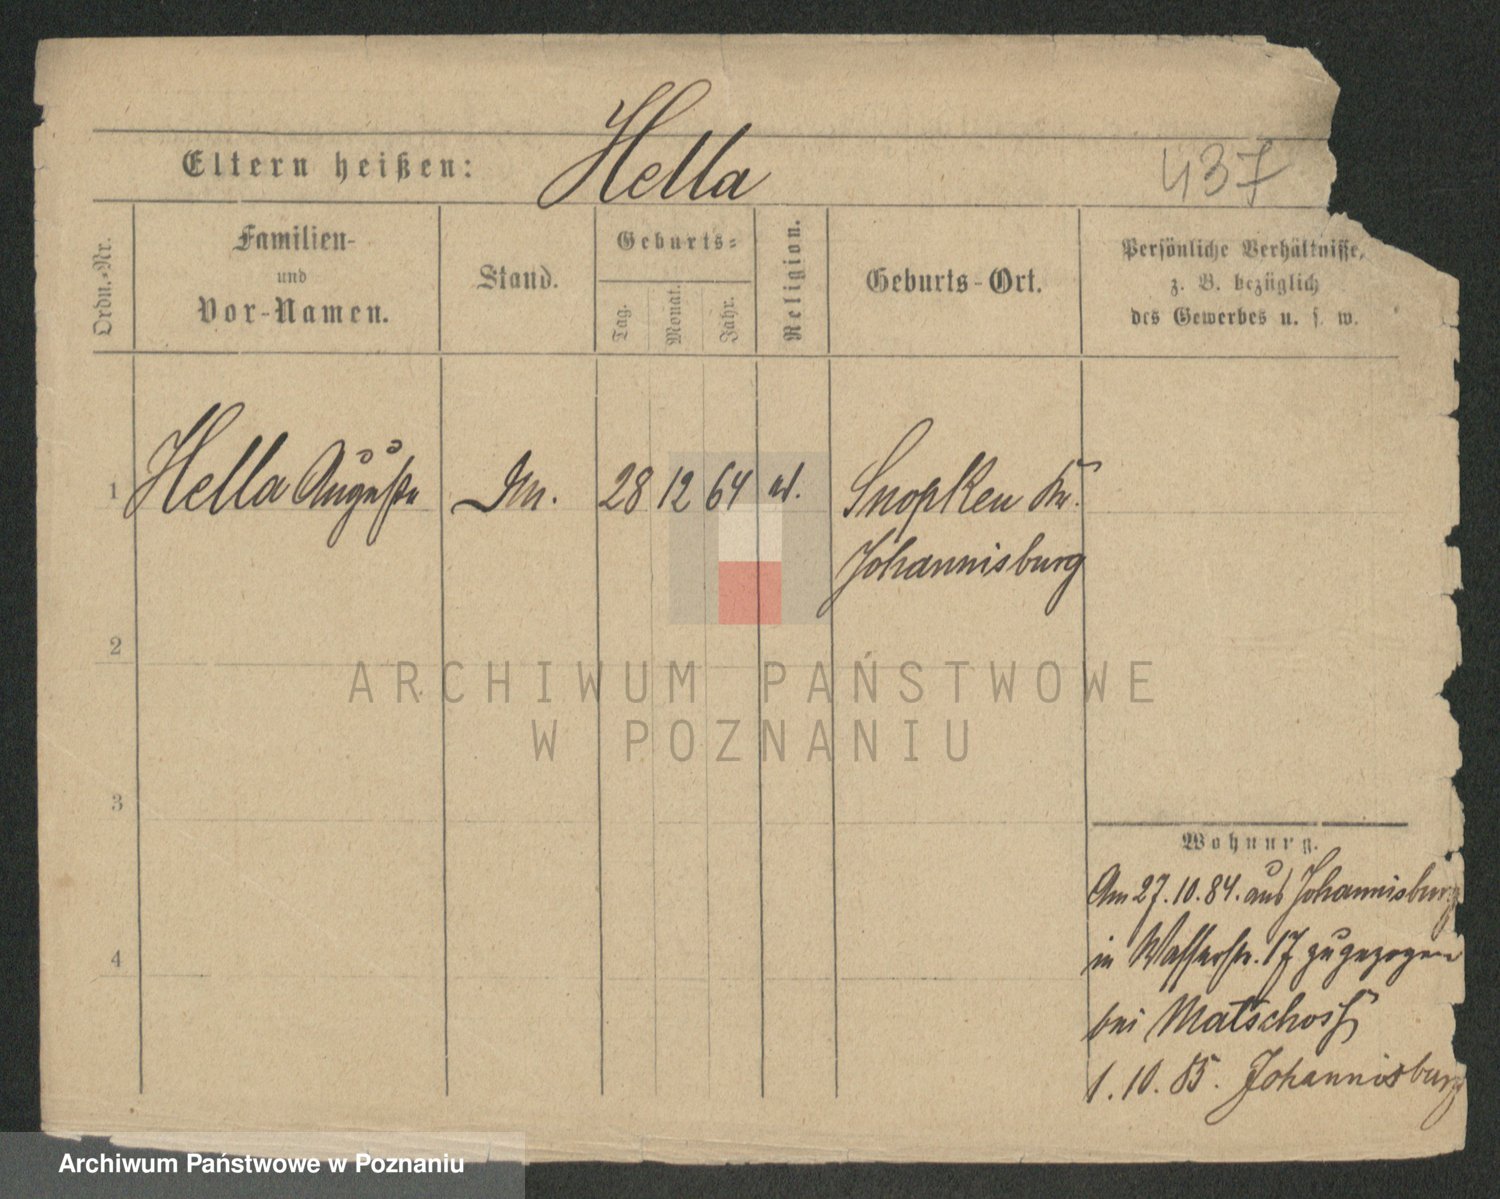 Hella
Eltern heißen:
437
Ordn.-Nr.
Familien-
und
Vor-Namen.
Stand.
Geburts-
Tag.
Monat.
Jahr.
Religion.
Geburts-Ort.
Persönliche Verhältnisse,
z. B. bezüglich
des Gewerbes u. s. w.
1 Hella Auguste 28 12 64 Snopken Kr.
Johannisburg
2
3
4
Wohnung.
Am 27.10.84. aus Johannisburg
in Wasserstr. 17 zugezogen
bei Matschoß
1.10.85. Johannisburg
ARCHIWUM PAŃSTWOWE
W POZNANIU
Archiwum Państwowe w Poznaniu